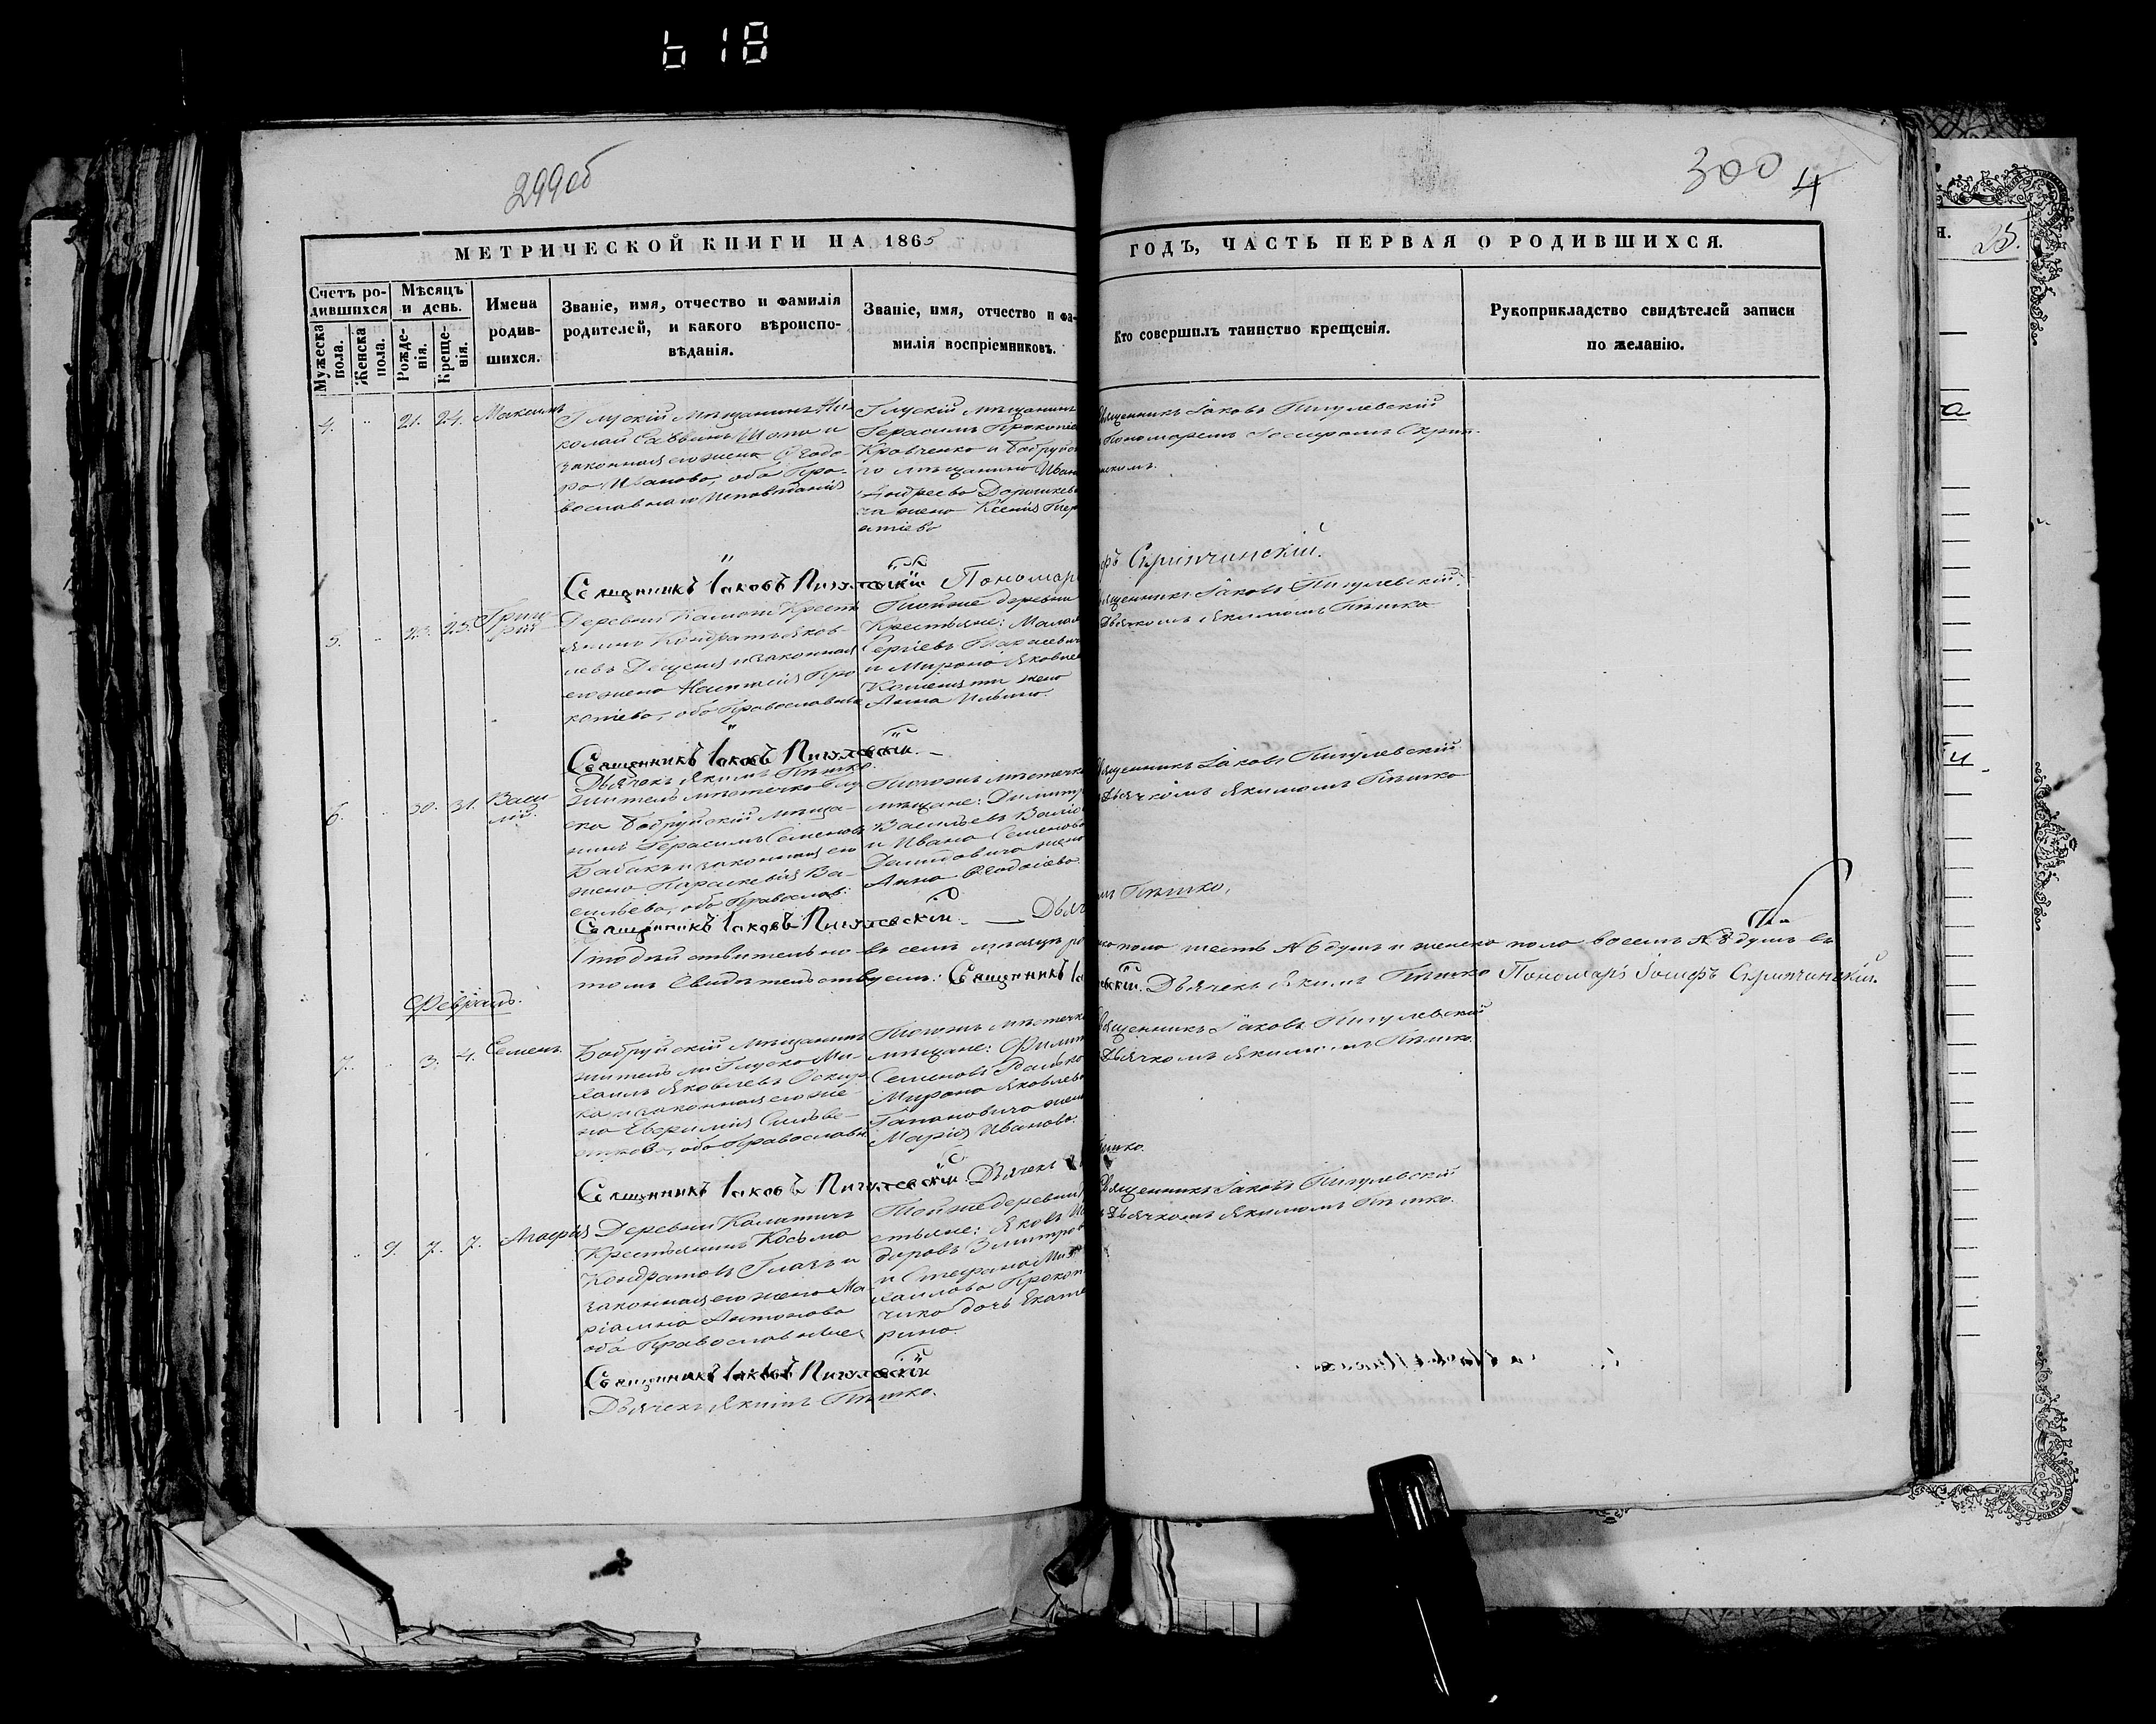 618
299об
300
4
МЕТРИЧЕСКОЙ КНИГИ НА 1865
ГОДЪ, ЧАСТЬ ПЕРВАЯ О РОДИВШИХСЯ.
Счетъ ро-
дившихся
Мѣсяцъ
и день.
Мужеска
пола.
Женска
пола.
Рожде-
нія.
Креще-
нія.
Имена
родив-
шихся.
Званіе, имя, отчество и фамилія
родителей, и какого вѣроиспо-
вѣданія.
Званіе, имя, отчество и фа-
милія воспріемниковъ.
Кто совершилъ таинство крещенія.
Рукоприкладство свидѣтелей записи
по желанію.
4. " 21. 24. Максимъ
Глускій Мѣщанинъ Ни-
колай Саввинъ и
законная его жена Ѳеодо-
ра Иванова, оба Пра-
вославнаго Исповѣданія
Глускій мѣщанинъ
Герасимъ Прокопіе
Кравченко и Бобруйс
го мѣщанина Иван
Андреева
ча жена Ксенія
Священникъ Іаковъ Пигулевскій
Пономаремъ Іосифомъ Скрип-
скомъ.
Священникъ Іаковъ Пигулевскій Пономар
фъ Скрипчинскій.
5. " 23. 25. Григо
рій
Деревни Крестья
янинъ Кондратъ Яков-
левъ и законная
его жена Про
копіева, оба Православные
Тойже деревни
Крестьяне:
Сергіевъ
и Мирона Яковлев
жена
Анна Ильина.
Священникъ Іаковъ Пигулевскій
Дьячкомъ Якимомъ Пѣшко
Священникъ Іаковъ Пигулевскій.
Дьячокъ Якимъ Пѣшко.
6. " 30. 31. Васи
лій.
Житель мѣстечка Глу
ска Бобруйскій мѣща-
нинъ Герасимъ Семеновъ
Бабакъ и законная его
жена Параскевія Ва-
сильева, оба Православ:
Тогожъ мѣстечка
мѣщане: Димитр
Васильевъ
и Ивана Семенова
Демидовича жена
Анна
Священникъ Іаковъ Пигулевскій
Дьячкомъ Якимомъ Пѣшко
Священникъ Іаковъ Пигулевскій. — Дьяч
мъ Пѣшко.
въ семъ мѣсяцѣ ро
ко пола шесть № 6 душъ и женска пола восемь № 8 душъ въ
томъ Свидѣтельствуемъ: Священникъ Іа
вскій. Дьячекъ Якимъ Пѣшко Пономарь Іосифъ Скрипчинскій.
Февраль.
7. " 3. 4. Семенъ.
Бобруйскій мѣщанинъ
житель м: Глуска Ми-
хаилъ Яковлевъ Оскир
ка и законная его же-
на Евфимія Сильве-
строва, оба Православн
Тогожъ мѣстечка
мѣщане: Филип
Семеновъ
Мирона Яковлева
Гапановича жена
Марія Иванова.
Священникъ Іаковъ Пигулевскій
Дьячкомъ Якимомъ Пѣшко.
Священникъ Іаковъ Пигулевскій Дьячекъ
Пѣшко.
" 9. 7. 7. Агафія
Деревни Калатичъ
Крестьянинъ Косьма
Кондратовъ и
законная его жена Ма-
ріанна Антонова
оба Православные
Тойже деревни
стьяне: Яковъ
доровъ Змитро
и Стефана Ми
хаилова Прокоп
чика дочь Екате
рина.
Священникъ Іаковъ Пигулевскій
Дьячкомъ Якимомъ Пѣшко.
Священникъ Іаковъ Пигулевскій
Дьячекъ Якимъ Пѣшко.
25.